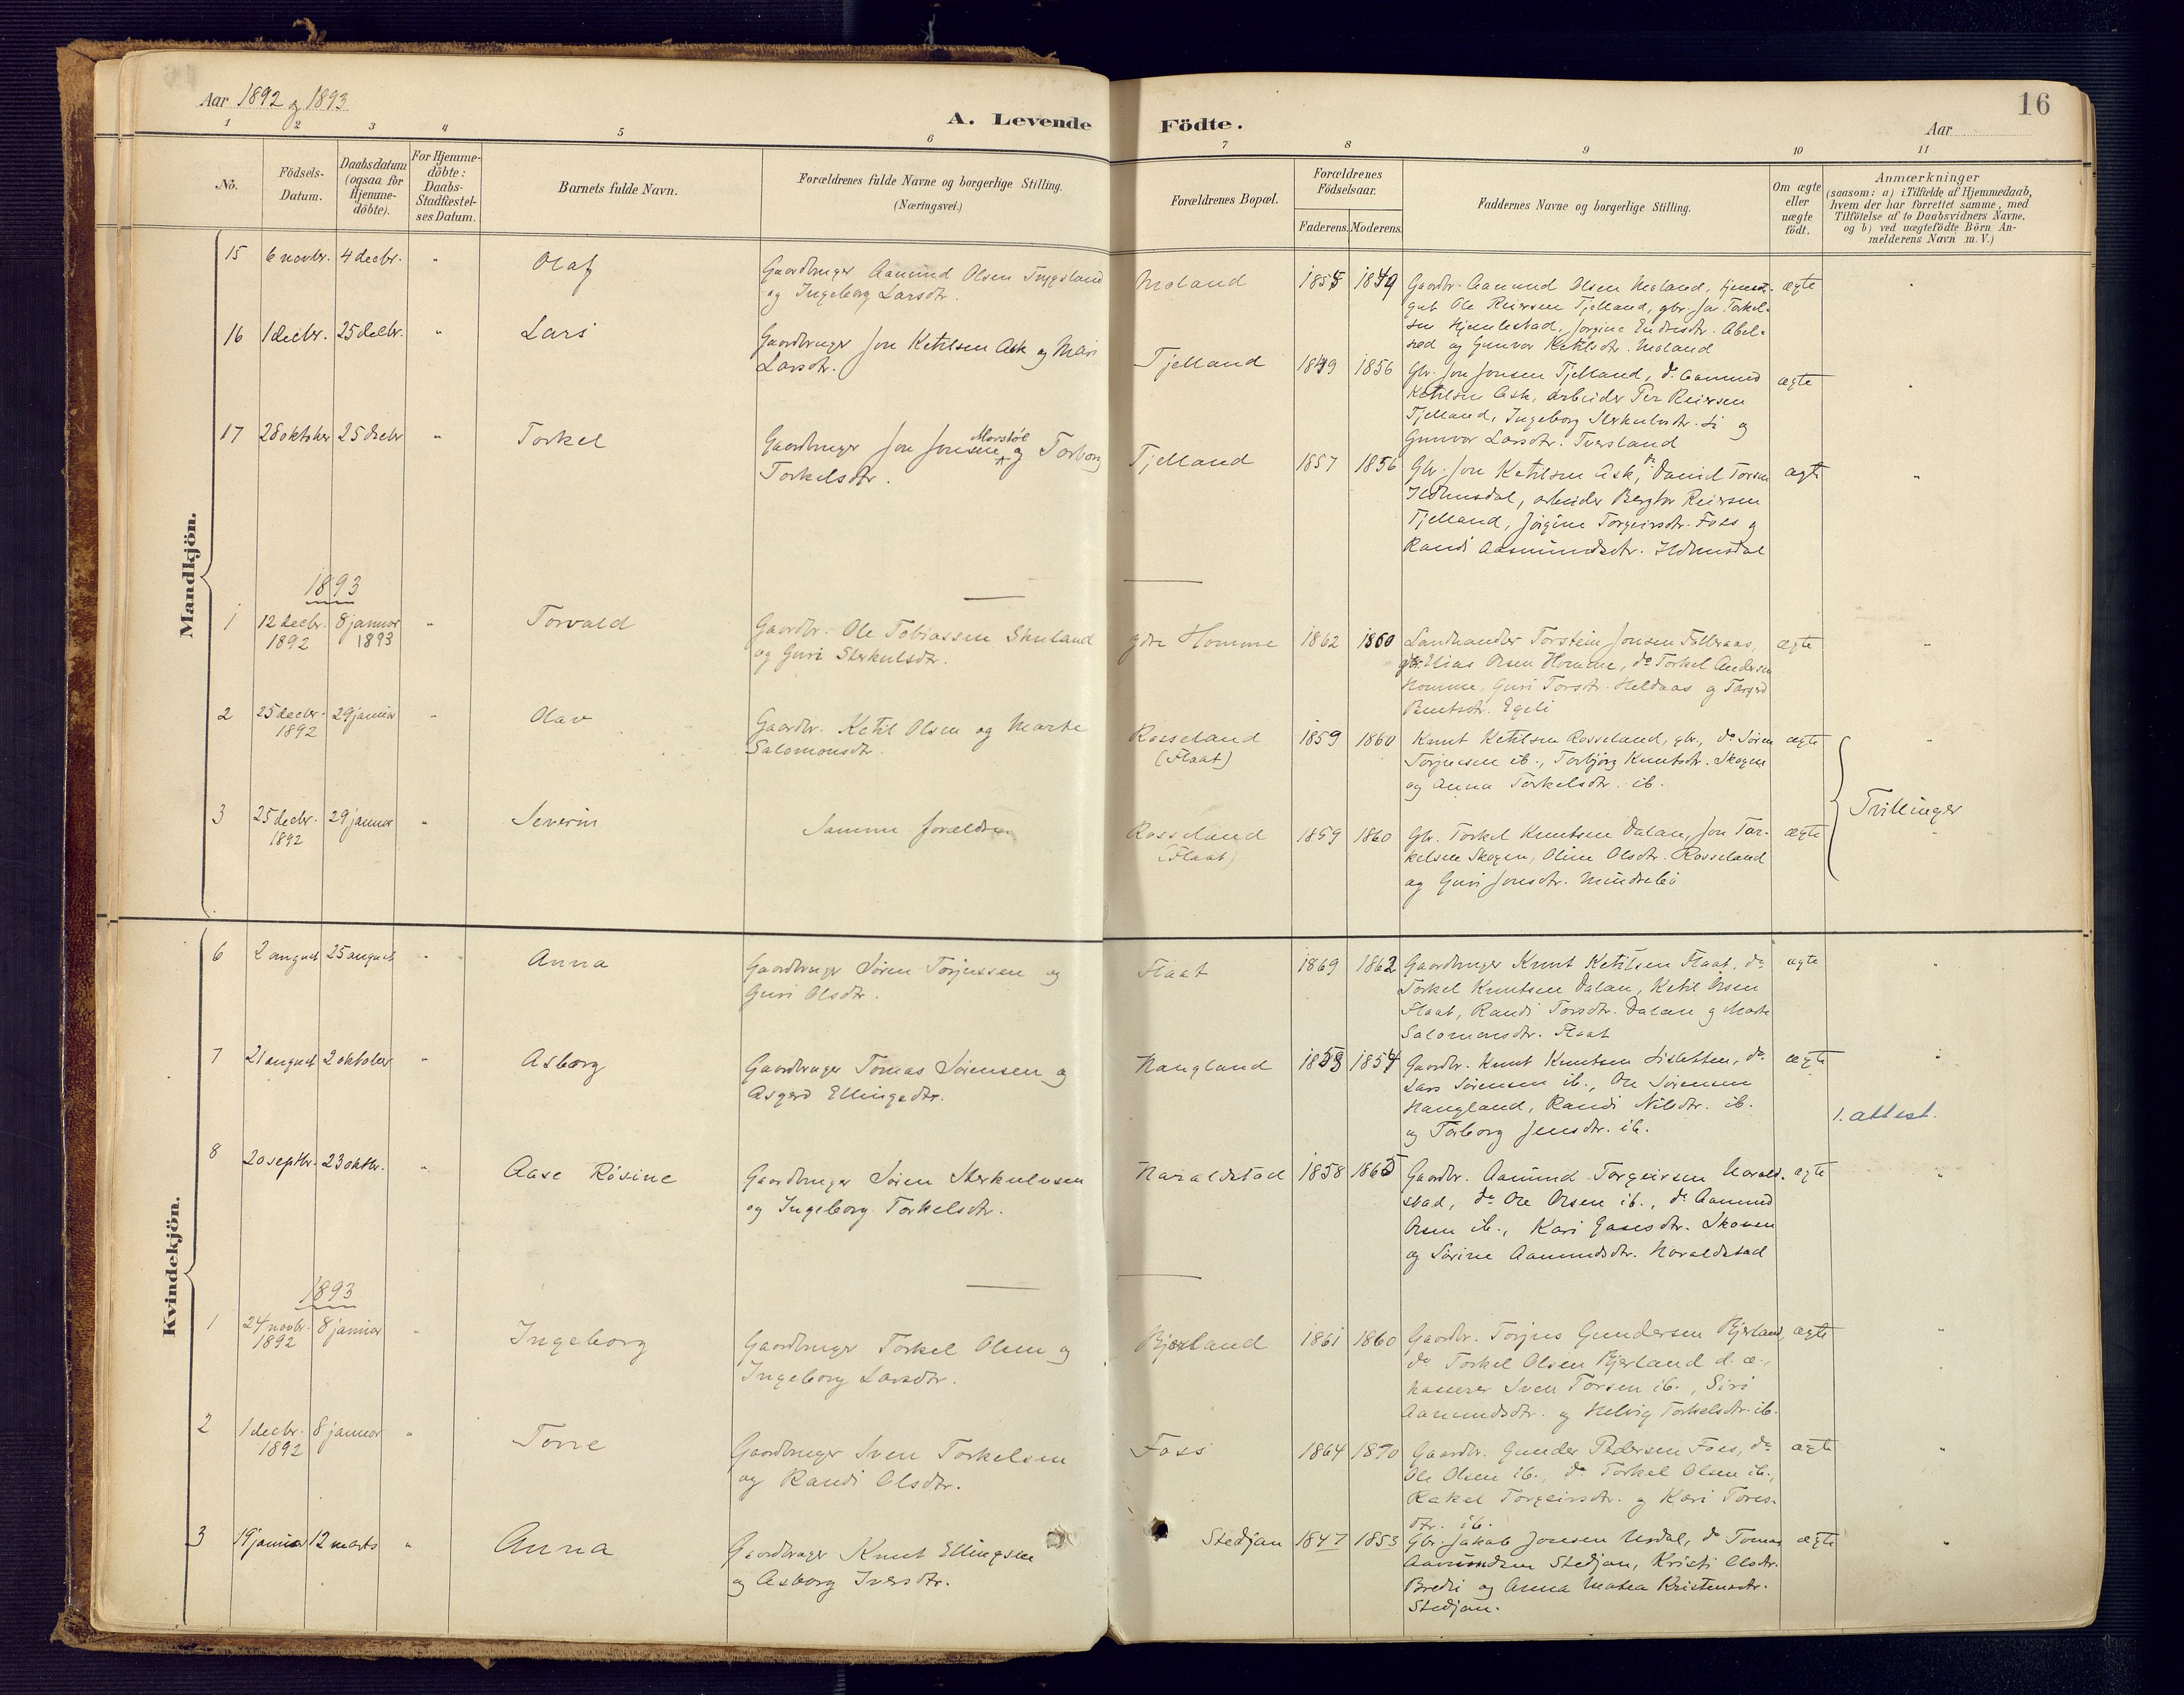 Aar 1892 og 1893
A. Levende Födte.
Aar
16
1 2 3 4 5 6 7 8 9 10 11
No.
Födsels-
Datum.
Daabsdatum
(ogsaa for
Hjemme-
döbte).
For Hjemme-
döbte:
Daabs-
Stadfæstel-
ses Datum.
Barnets fulde Navn.
Forældrenes fulde Navne og borgerlige Stilling.
(Næringsvei.)
Forældrenes Bopæl.
Forældrenes
Födselsaar.
Faderens. Moderens.
Faddernes Navne og borgerlige Stilling.
Om ægte
eller
uægte
födt.
Anmærkninger
(saasom: a) i Tilfælde af Hjemmedaab,
hvem der har forrettet samme, med
Tilföielse af to Daabsvidners Navne,
og b) ved uægtefödte Börn An-
melderens Navn m. V.)
Mandkjön.
15 6 novbr. 4 decbr. " Olaf
Gaardbruger Aanund Olsen
og Ingeborg Larsdtr.
Moland 1854 1849
Gaardbr. Aanund Olsen Moland,
gut Ole Reiersen Tjelland, gbr. Jon Torkel-
sen Hjemlestad, Jorgine Endresdtr. Abel-
sæd og Gunvor Ketilsdtr. Moland
ægte "
16 1 decbr. 25 decbr. " Lars
Gaardbruger Jon Ketilsen Ask og Mari
Larsdtr.
Tjelland 1849 1856
Gbr. Jon Jonsen Tjelland, do. Aanund
Ketilsen Ask, arbeider Per Reiersen
Tjelland, Ingeborg Sterkulvsdtr. Li og
Gunvor Larsdtr. Tversland
ægte "
17 28 oktober 25 decbr " Torkel
Gaardbruger Jon Jonsen Monstøl og Torborg
Torkelsdtr.
Tjelland 1857 1856
Gbr. Jon Ketilsen Ask, do Daniel Torsen
Ildmusdal, arbeider Bergtor Reiersen
Tjelland, Jörgine Torgeirsdtr. Foss og
Randi Aasmundsdtr. Ildmusdal
ægte "
1893
1 12 decbr. 8 januar " Torvald
1892 1893
Gaardbr. Ole Tobiassen Skuland
og Guri Sterkulsdtr.
ydre Homme 1862 1860
Landhandler Torstein Jonsen Fælleraas,
gbr. Elias Olsen Homme, do Torkel Andersen
Homme, Guri Torsdtr. Heldaas og Torgerd
Bentsdtr. Egeli
ægte "
2 25 decbr. 29 januar " Olav
1892
Gaardbr. Ketil Olsen og Marte
Salomonsdtr.
Rosseland 1859 1860
(Flaat)
Knut Ketilsen Rosseland, gbr., do Søren
Torjussen ib., Torbjørg Knutsdtr. Skogen
og Anna Torkelsdtr. ib.
ægte "
3 25 decbr. 29 januar " Severin
1892
Samme forældre
Rosseland 1859 1860
(Flaat)
Gbr. Torkel Knutsen Dalan, Jon Tor-
kelsen Skogen, Oline Olsdtr. Rosseland
og Guri Jonsdtr. Mindrebö
ægte "
Tvillinger
Kvindekjön.
6 2 august 25 august " Anna
Gaardbruger Sören Torjussen og
Guri Olsdtr.
Flaat 1869 1862
Gaardbruger Knut Ketilsen Flaat, do
Torkel Knutsen Dalan, Ketil Olsen
Flaat, Randi Torsdtr. Dalan og Marte
Salomonsdtr. Flaat
ægte "
7 21 august 2 oktober " Asborg
Gaardbruger Tomas Sörensen og
Asgerd Ellingsdtr.
Haugland 1853 1854
Gaardbr. Knut Knutsen Lisletten, do.
Lars Sörensen ib., Ole Sörensen
Haugland, Randi Nilsdtr. ib.
og Torborg Jensdtr. ib.
ægte "
1. attest.
8 20 septbr. 23 oktbr. " Aase Rösine
Gaardbruger Sören Sterkulvsen
og Ingeborg Torkelsdtr.
Haraldstad 1858 1865
Gaardbr. Aamund Torgeirsen Harald-
stad, do Ole Olsen ib., do Aanund
Olsen ib., Kari Gaasdtr. Skoven
og Sörine Aanundsdtr. Haraldstad
ægte "
1893
1 24 novbr. 8 januar " Ingeborg
1892
Gaardbruger Torkel Olsen og
Ingeborg Larsdtr.
Bjerland 1861 1860
Gaardbr. Torjus Gundersen Bjerland,
do Torkel Olsen Bjerland d. æ.,
kasserer Sven Torsen ib., Siri
Aanundsdtr. og Helvig Torkelsdtr. ib.
ægte "
2 1 decbr. 8 januar " Torre
1892
Gaardbruger Sven Torkelsen
og Randi Olsdtr.
Foss 1864 1870
Gaardbr. Gunder Pedersen Foss, do
Ole Olsen ib., do Torkel Olsen ib.,
Rakel Torgeirsdtr. og Kari Tores-
dtr. ib.
ægte "
3 19 januar 12 marts " Anna
Gaardbruger Knut Ellingsen
og Asborg Iversdtr.
Stedjan 1847 1853
Gbr. Jakob Jonsen Usdal, do Tomas
Aamundsen Stedjan, Kristi Olsdtr.
Bredli og Anna Matea Kristensdtr.
Stedjan.
ægte "